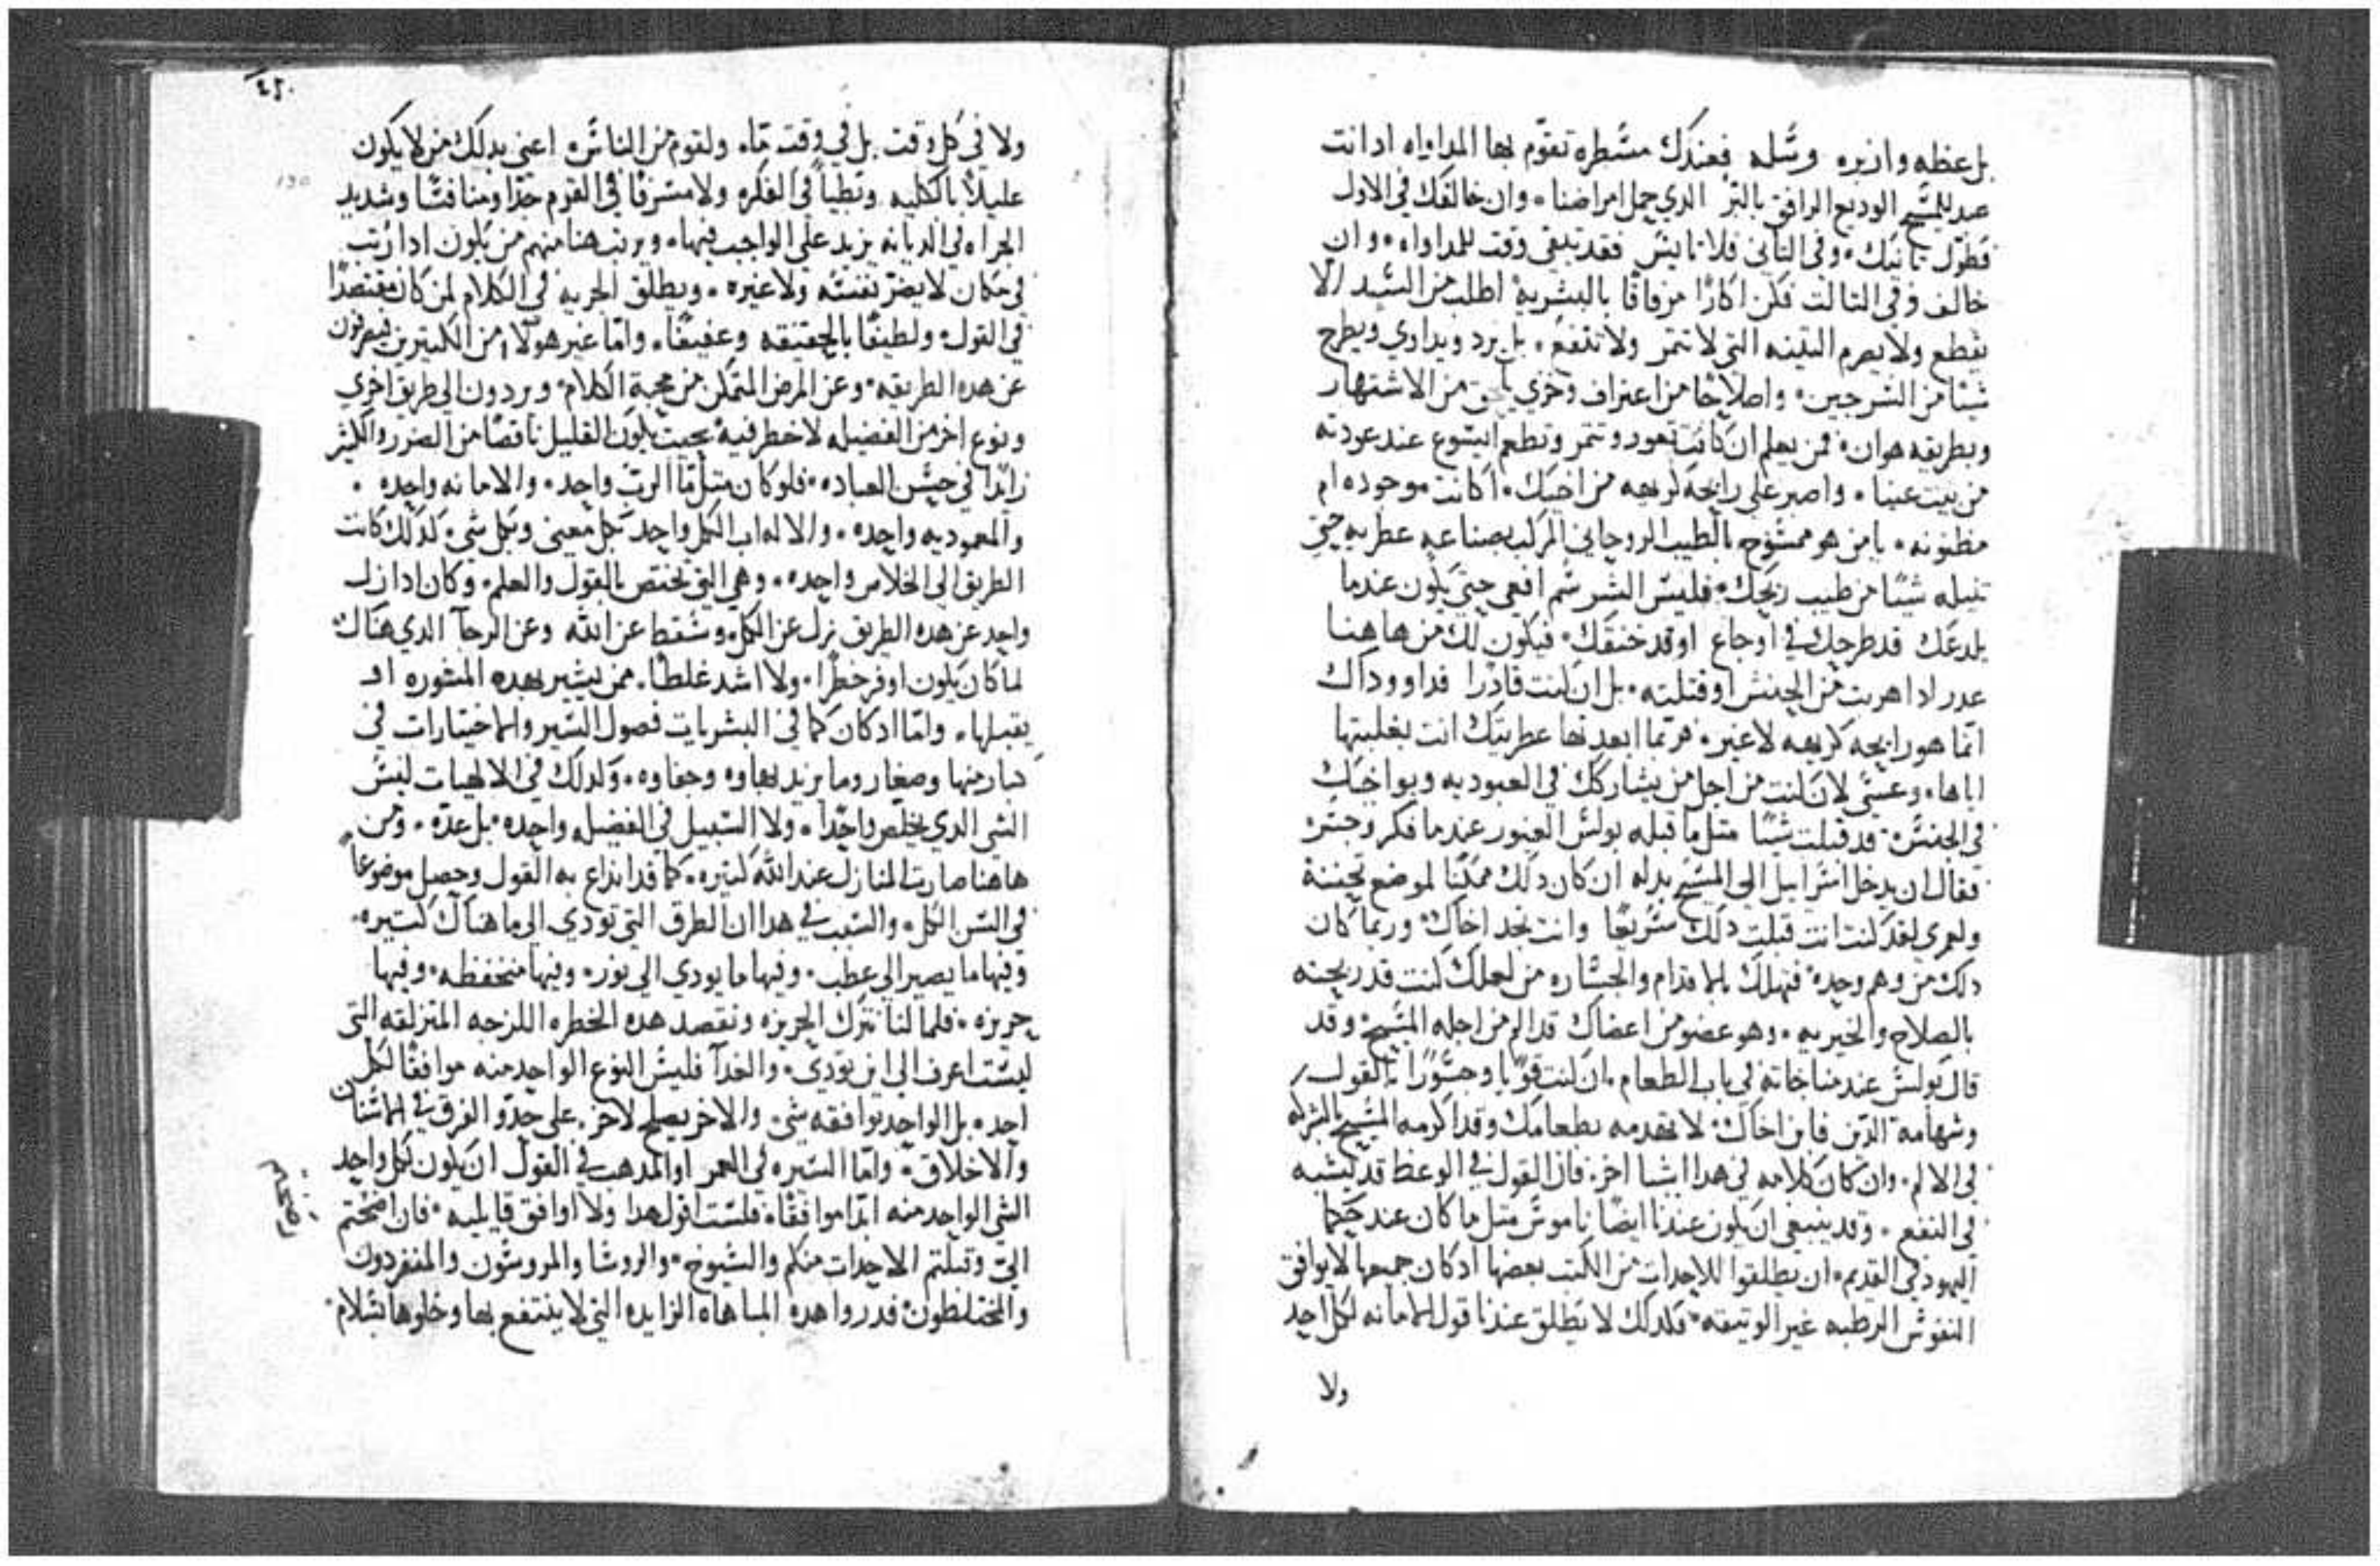 بل عظه وازبره وسله فعندك مسطره تقوّم بها المداواه ادا انت
عبد للمسيح الوديع الرافق بالبر الدي حمل امراضنا وان خالفك في الاول
فطوّل بانيك وفي التاني فلا تايس فقد تبقى وقت للمداواه وان
خالف وفي التالت فكن اكارًا مرفاقًا بالبشرية اطلب من السيد الا
يقطع ولا يصرم التينه التي لا تتمر ولا تنفع بل يرد ويداوي ويطرح
شيئا من السرجين واصلاحًا من اعتراف وخزي من الاشتهار
وبطريقه هوان فمن يعلم ان كانت تعود وتتمر وتطعم ايسوع عند عودته
من بيت عنيا واصبر على رايحة كريهه من اخيك اكانت موجوده ام
مظنونه يا من هو ممسوح بالطيب الروحاني المركب بصناعه عطريه حتى
تنيله شيئا من طيب ريحك فليس الشر سم افعى حتى يكون عندما
يلدعك قد طرحك في اوجاع او قد خنقك فيكون لك من هاهنا
عدر ادا هربت من الحنش او قتلته بل ان كنت قادرًا فداوو داك
انما هو رايحه كريهه لا غير فربما ابعدتها عطريتك انت بغلبتها
اياها وعسى لان كنت من اجل من يشاركك في العبوديه ويواخيك
في الجنس قد قبلت شيئا متل ما قبله بولس الغيور عندما فكر وجسر
فقال ان يدخل اسرايل الى المسيح بدله ان كان دلك ممكنًا لموضع تحننه
ولعمري لقد كنت انت قبلت دلك سريعًا وانت تجد اخاك وربما كان
دلك من وهم وحده فتهلك بالاقدام والجساره من لعلك كنت قد ربحته
بالصلاح والخيريه وهو عضو من اعضاك قد الم من اجله المسيح وقد
قال بولس عند مناجاته في باب الطعام ان كنت قويًا وجسورًا بالقول
وشهامه الدين فابن اخاك لا تهدمه بطعامك وقد اكرمه المسيح بالشركه
في الالم وان كان كلامه في هدا اشيا اخر فان القول في الوعظ قد يشبه
في النفع وقد ينبغي ان يكون عندنا ايضًا ناموس متل ما كان عند حكما
اليهود في القديم ان يطلقوا للاحداث من الكتب بعضها اد كان جميعها لا يوافق
النفوس الرطبه غير الوتيقه فكدلك لا يطلق عندنا قول الامانه لكل احد
ولا
٤٢٠
ولا في كل وقت بل في وقت مّا ولقوم من الناس اعني بدلك من لا يكون
عليلاً بالكليه وبطيًا في الفكره ولا مسرفًا في القوم جدًا ومنافسًا وشديد
الحراه في الديانه يزيد على الواجب فيها ويرتب هنا منهم من يكون ادا رتب
في مكان لا يضر نفسه ولا غيره ويطلق الحريه في الكلام لمن كان مقتصدًا
في القول ولطيفًا بالحقيقه وعفيفًا واما غير هولاء من الكتيرين فيصرفون
عن هده الطريقه وعن المرض المتمكن من محبة الكلام ويردون الى طريق اخرى
ونوع اخر من الفضيله لا خطر فيه بحيت يكون القليل ناقصًا من الضرر والكثير
زايدًا في حسن العباده فلو كان متل ما الرب واحد والامانه واحده
والمعوديه واحده والاله اب الكل واحد بكل معنى وبكل شي كدلك كانت
الطريق الى الخلاص واحده وهي التي تختص بالقول والعلم وكان ادا زل
واحد عن هده الطريق زل عن الكل وسقط عن الله وعن الرجا الدي هناك
لما كان يكون اوفر خطرًا ولا اشد غلطًا ممن يشير بهده المشوره او
يقبلها واما اد كان كما في البشريات فصول السير والاختيارات في
كبار منها وصغار وما يزيد بهاوه وجفاوه وكدلك في الالهيات ليس
الشي الدي يخلص واحدًا ولا السبيل في الفضيله واحده بل عدّه ومن
هاهنا صارت المنازل عند الله كتيره كما قد انداع به القول وحصل موضوعًا
في السن الكل والسبب في هدا ان الطرق التي تودي الى ما هناك كتيره
وفيها ما يصير الى عطب وفيها ما يودي الى نور وفيها منخفظه وفيها
حريزه فلما لنا نترك الحريزه ونقصد هده الخطره اللزجه المتزلقه التي
ليست اعرف الى اين تودي والغدا فليس النوع الواحد منه موافقًا لكل
احد بل الواحد يوافقه شي والاخر يصلح لاخر على حدّ والفرق في الاسنان
والاخلاق واما السيره في العمر او المدهب في القول ان يكون لكل واحد
الشي الواحد منه ابدا موافقًا فلست اقول هدا ولا اوافق قايليه فان اضختم
اليّ وقبلتم الاحدات منكم والشيوخ والروسا والمروسون والمنفردون
والمختلطون فدروا هده المباهاه الزايده التي لا ينتفع بها وخلوها بسلام